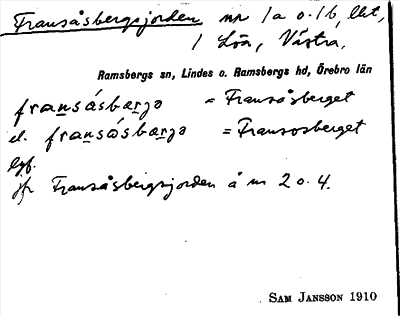 Fransåsbergsjorden nr 1a o. 1b, lht,
1 Löa, Västra,
Ramsbergs sn, Lindes o. Ramsbergs hd, Örebro län
fransåsbarjə = Fransåsberget
el. fransåsbarjə = Fransosberget
lgf.
jfr Fransåsbergsjorden å nr 2 o. 4.
SAM JANSSON 1910